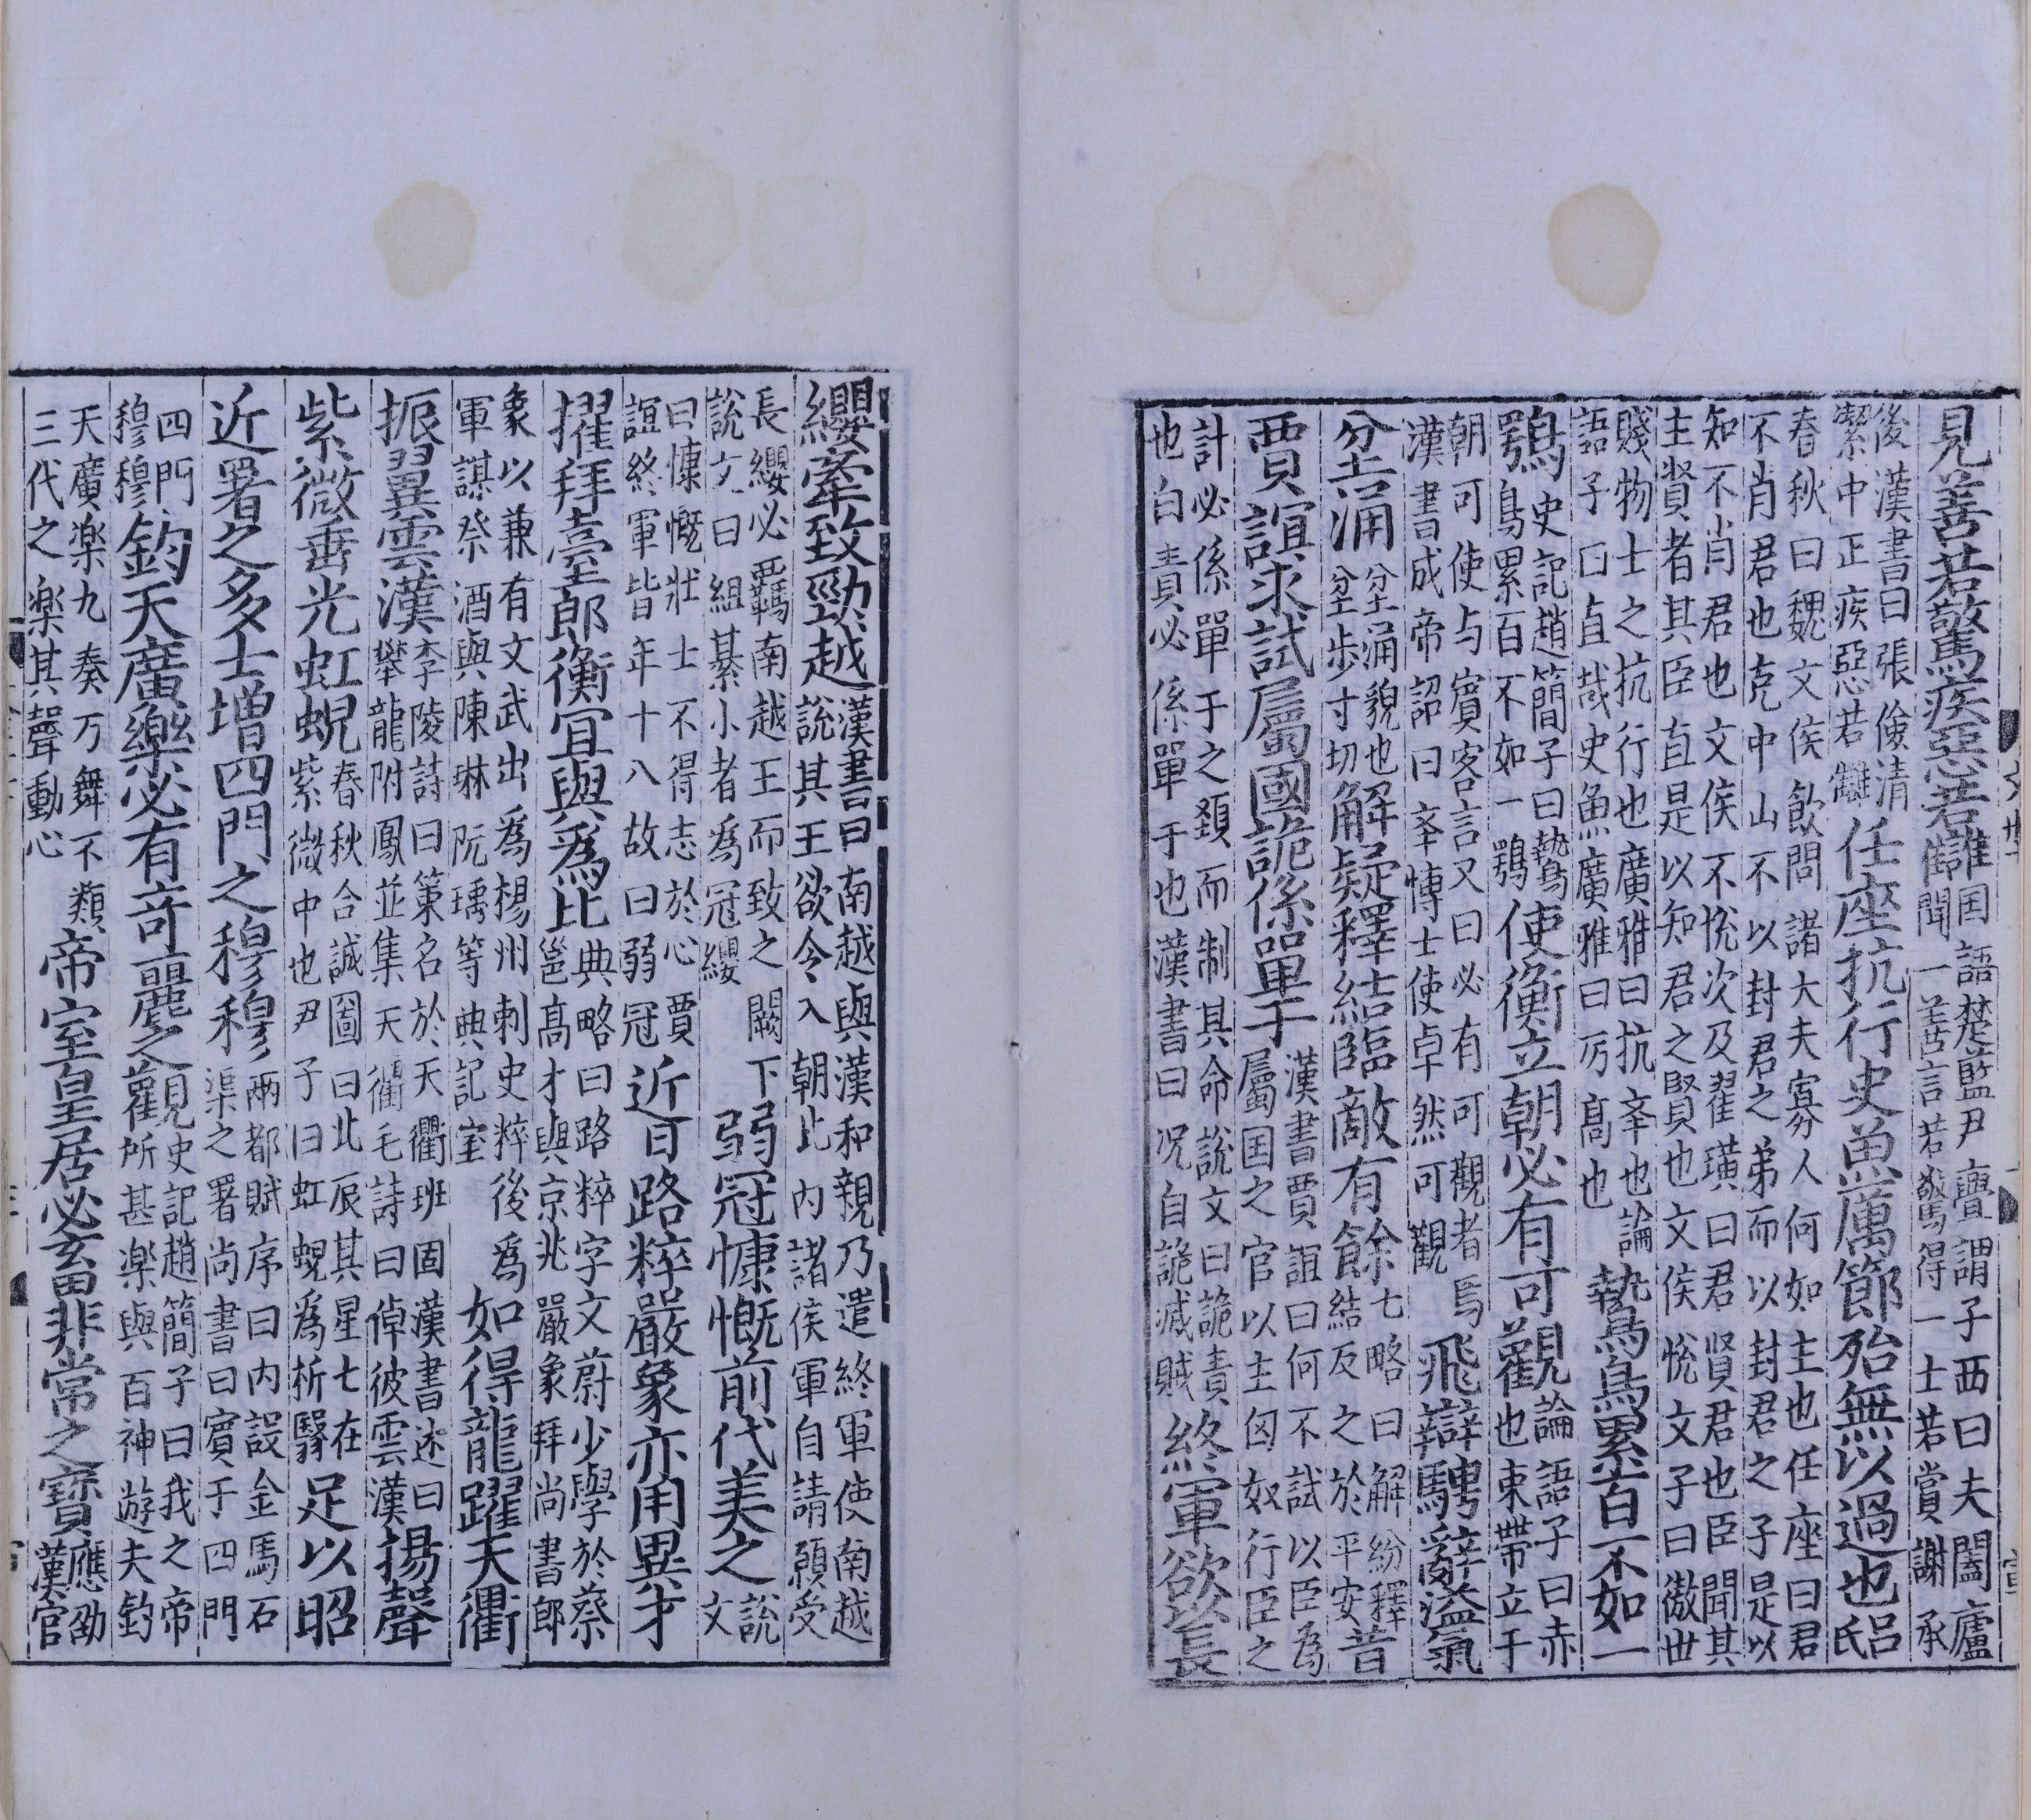 見善若驚疾惡若讎国語楚藍尹亹謂子西曰夫闔廬聞一善言若驚得一士若賞謝承
後漢書曰張儉清絜中正疾惡若讎任座抗行史魚厲節殆無以過也呂氏
春秋曰魏文侯飲問諸大夫寡人何如主也任座曰君不肖君也克中山不以封君之弟而以封君之子是以
知不肖君也文侯不恱次及翟璜曰君賢君也臣聞其主賢者其臣直是以知君之賢也文侯恱文子曰傲世
賤物士之抗行也廣雅曰抗㚔也論語子曰直㦲史魚廣雅曰厉高也鷙鳥累百不如一
鶚史記趙簡子曰鷙鳥累百不如一鶚使衡立朝必有可觀論語子曰赤也束帶立于
朝可使与賓客言又曰必有可觀者焉漢書成帝詔曰㚔博士使卓然可觀飛辯騁辭溢氣
坌涌坌涌貌也坌步寸切解疑釋結臨敵有餘七略曰解紛釋結反之於平安昔
賈誼求試屬國詭係單于漢書賈誼曰何不試以臣爲屬国之官以主匈奴行臣之
計必係單于之頚而制其命說文曰詭責也白責必係單于也漢書曰况自詭滅賊終軍欲以長
纓牽致勁越漢書曰南越與漢和親乃遣終軍使南越說其王欲令入朝比內諸侯軍自請願受
長纓必羈南越王而致之闕下說文曰組綦小者爲冠纓弱冠慷慨前代美之說文
曰慷慨壯士不得志於心賈誼終軍皆年十八故曰弱冠近日路粹嚴象亦用異才
擢拜臺郎衡宜與爲比典略曰路粹字文蔚少學於蔡邕高才與京兆嚴象拜尚書郎
象以兼有文武出爲楊州刺史粹後爲軍謀祭酒與陳琳阮瑀等典記室如得龍躍天衢
振翼雲漢李陵詩曰策名於天衢班固漢書述曰攀龍附鳳並集天衢毛詩曰倬彼雲漢揚聲
紫微垂光虹蜺春秋合誠圖曰北辰其星七在紫微中也尹子曰虹蜺爲析翳足以昭
近署之多士增四門之穆穆兩都賦序曰內設金馬石渠之署尚書曰賓于四門
四門穆穆鈞天廣樂必有奇麗之觀史記趙簡子曰我之帝所甚楽與百神遊夫鈞
天廣楽九奏万舞不類三代之楽其聲動心帝室皇居必畜非常之寶應劭漢官